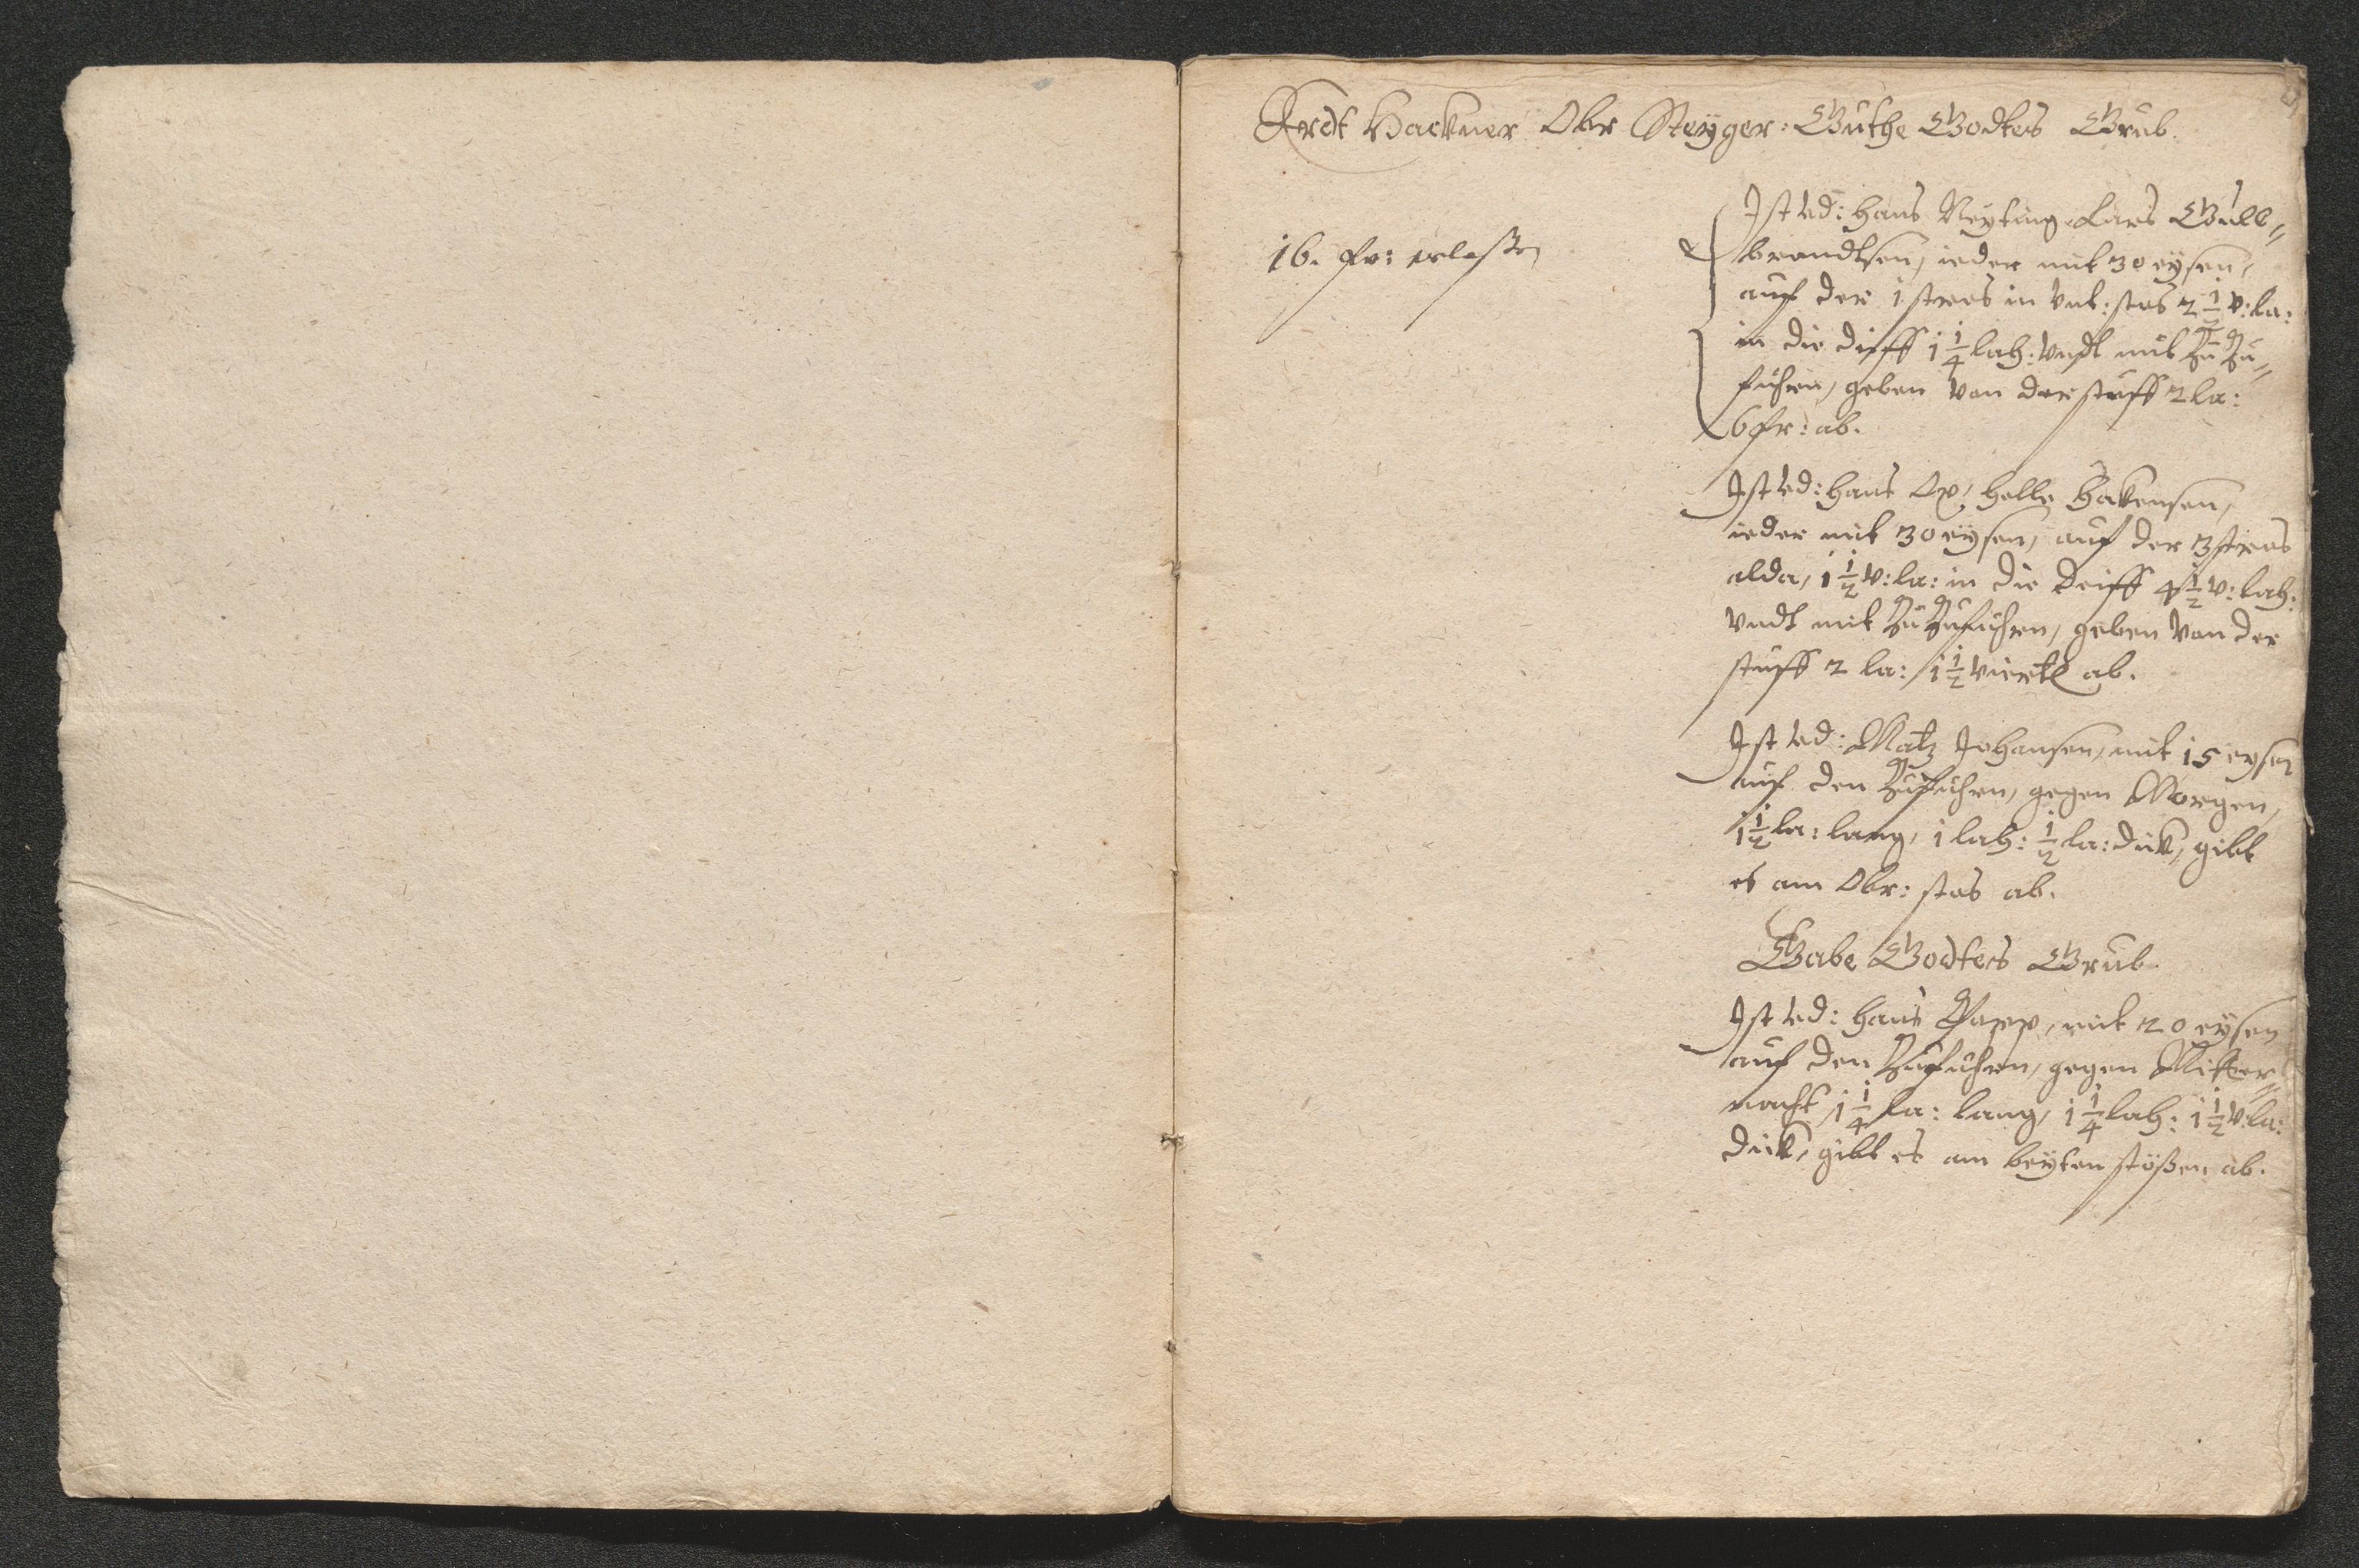 Ardt Hackner Obr Steyger: Guthe Godtes Grub.
16. fr: erlaßen
Ist vd: Hans Neyting Lars Gull„
brandtsen, ieder mit 30 eysen,
auf der 1 stros in Unt: stos 2 1/2 v: la:
in die diff 1 1/4 lah: undt mit Zu Zu„
fuhren, geben Von der stuff 2 la:
6 fr: ab.
Ist vd: Hans Ox, Helle Hakensen,
ieder mit 30 eysen, auf der 3 stros
alda, 1 1/2 v: la: in die deiff 4 1/2 v: lah:
Undt mit Zu Zufuhren, geben Von der
stuff 2 la: 1 1/2 viertl ab.
Ist vd: Matz Johansen, mit 15 eysen
auf den Zufuhren, gegen Morgen,
1 1/2 la: lang, 1 lah: 1/2 la: dick, gibt
es am Obr: stos ab.
Gabe Godtes Grub.
Ist vd: Hans Papp, mit 20 eysen
auf den Zufuhren, gegen Mitter„
nacht 1 1/4 la: lang, 1 1/4 lah: 1 1/2 v: la:
dick, gibt es am beyten stößen ab.